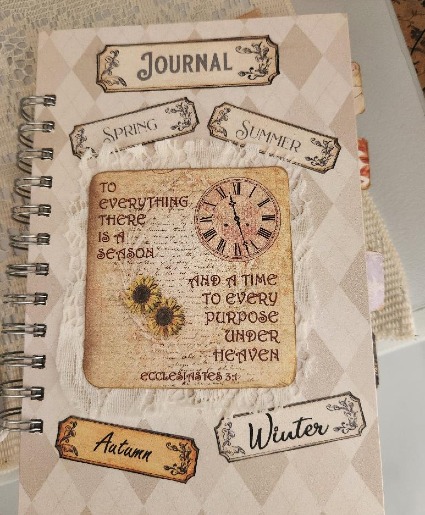 JOURNAL
SPRING
SUMMER
TO
EVERYTHING
THERE
IS A
SEASON
AND A TIME
TO EVERY
PURPOSE
UNDER
HEAVEN
ECCLESIASTES 3:1
Autumn
Winter